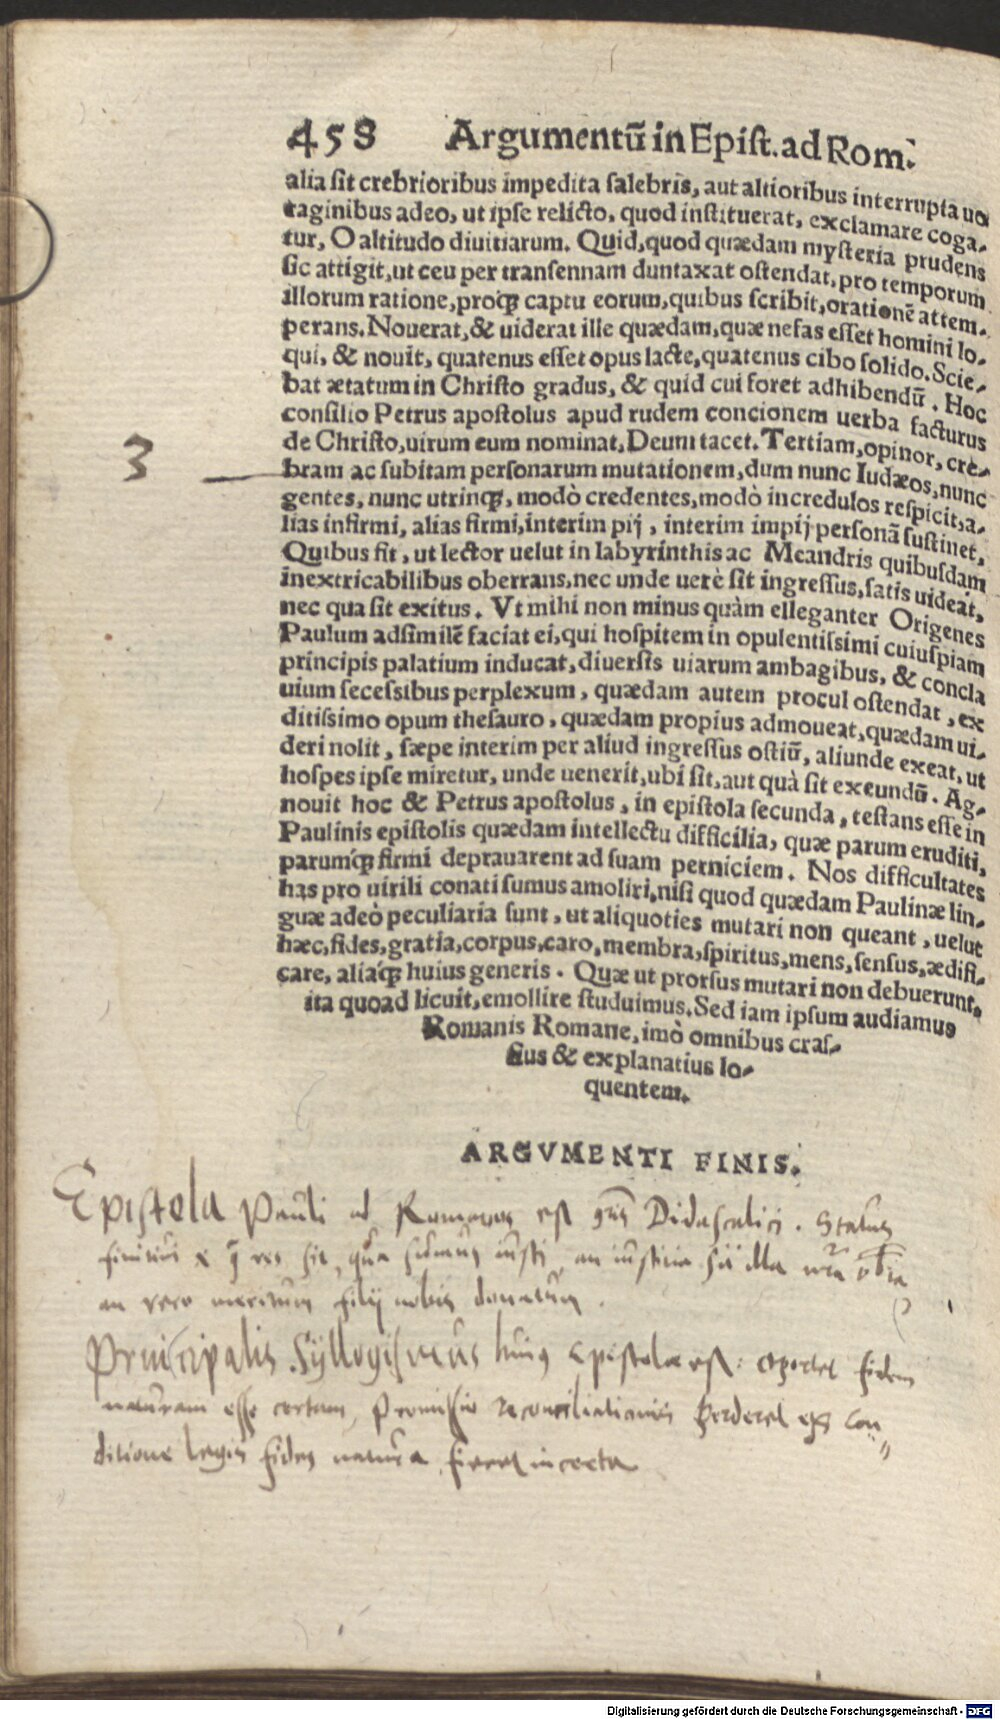 458 Argumentū in Epiſt. ad Rom.
alia ſit crebrioribus impedita ſalebris, aut altioribus interrupta uo
raginibus adeo, ut ipſe relicto, quod inſtituerat, exclamare coga-
tur, O altitudo diuitiarum. Quid, quod quædam myſteria prudens
ſic attigit, ut ceu per tranſennam duntaxat oſtendat, pro temporum
illorum ratione, proq́; captu eorum, quibus ſcribit, orationē attem-
perans. Nouerat, & uiderat ille quædam, quæ nefas eſſet homini lo-
qui, & nouit, quatenus eſſet opus lacte, quatenus cibo ſolido. Scie-
bat ætatum in Chriſto gradus, & quid cui foret adhibendū. Hoc
conſilio Petrus apoſtolus apud rudem concionem uerba facturus
de Chriſto, uirum eum nominat, Deum tacet. Tertiam, opinor, cre-
3
bram ac ſubitam perſonarum mutationem, dum nunc Iudæos, nunc
gentes, nunc utrinq́;, modò credentes, modò incredulos reſpicit, a-
lias infirmi, alias firmi, interim pij, interim impij perſonā ſuſtinet,
Quibus fit, ut lector uelut in labyrinthis ac Meandris quibuſdam
inextricabilibus oberrans, nec unde uerè ſit ingreſſus, ſatis uideat,
nec qua ſit exitus. Vt mihi non minus quàm elleganter Origenes
Paulum adſimilē faciat ei, qui hoſpitem in opulentiſsimi cuiuſpiam
principis palatium inducat, diuerſis uiarum ambagibus, & concla
uium ſeceſsibus perplexum, quædam autem procul oſtendat, ex
ditiſsimo opum theſauro, quædam propius admoueat, quædam ui-
deri nolit, ſæpe interim per aliud ingreſſus oſtiū, aliunde exeat, ut
hoſpes ipſe miretur, unde uenerit, ubi ſit, aut quà ſit exeundū. Ag-
nouit hoc & Petrus apoſtolus, in epiſtola ſecunda, teſtans eſſe in
Paulinis epiſtolis quædam intellectu difficilia, quæ parum eruditi,
parumq́; firmi deprauarent ad ſuam perniciem. Nos difficultates
has pro uirili conati ſumus amoliri, niſi quod quædam Paulinæ lin-
guæ adeò peculiaria ſunt, ut aliquoties mutari non queant, uelut
hæc, fides, gratia, corpus, caro, membra, ſpiritus, mens, ſenſus, ædifi-
care, aliaq́; huius generis. Quæ ut prorſus mutari non debuerunt,
ita quoad licuit, emollire ſtuduimus. Sed iam ipſum audiamus
Romanis Romane, imò omnibus craſ-
ſius & explanatius lo-
quentem.
ARGVMENTI FINIS.
Epistola Pauli ad Romanos est gñis Didascalici. Status
finitiuus quid res sit, qua sumus iusti, an iusticia sit illa nr̄a
an vero meritum filij nobis donatum.
Principalis Syllogismus huius Epistolæ est: oportet fidem
naturam esse certam, Promissio reconciliationis penderet ex con-
ditione legis fides natura fieret incerta
Digitalisierung gefördert durch die Deutsche Forschungsgemeinschaft - DFG